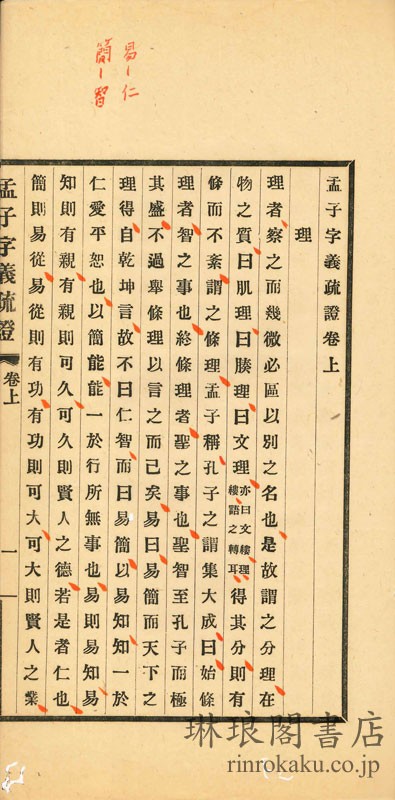 易―仁
簡―智
孟子字義疏證卷上
理
理者察之而幾微必區以別之名也是故謂之分理在
物之質曰肌理曰腠理曰文理亦曰文縷理縷語之轉耳得其分則有
條而不紊謂之條理孟子稱孔子之謂集大成曰始條
理者智之事也終條理者聖之事也聖智至孔子而極
其盛不過舉條理以言之而已矣易曰易簡而天下之
理得自乾坤言故不曰仁智而曰易簡以易知知一於
仁愛平恕也以簡能能一於行所無事也易則易知易
知則有親有親則可久可久則賢人之德若是者仁也
簡則易從易從則有功有功則可大可大則賢人之業
孟子字義疏證
卷上
一
琳琅閣書店
rinrokaku.co.jp